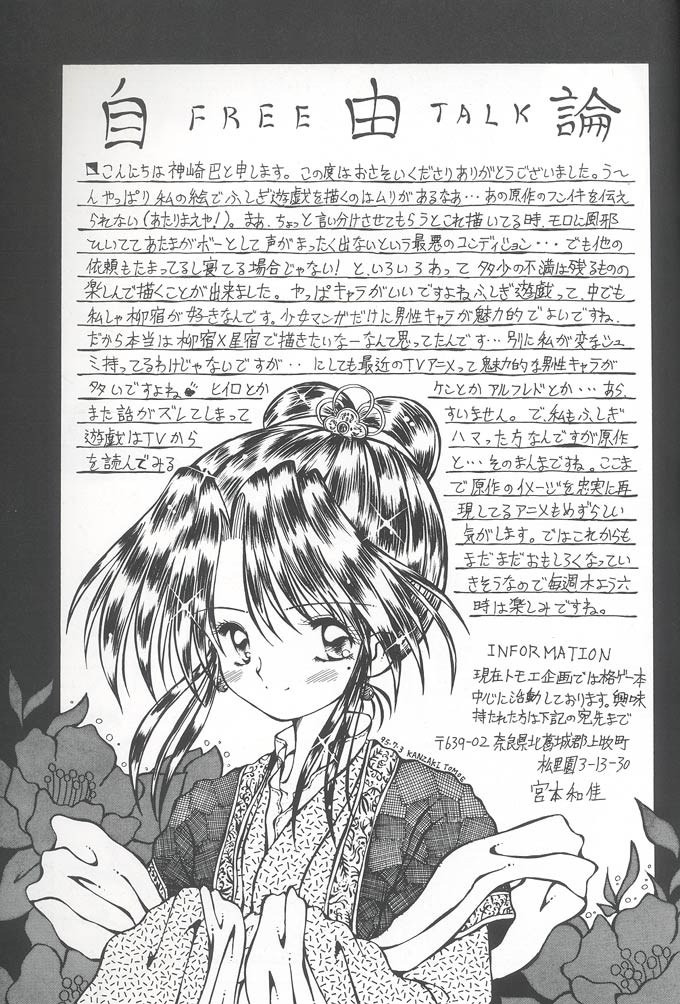 自 FREE 由 TALK 論
こんにちは神崎巴と申します。この度はおさそいくださりありがとうございました。う〜
んやっぱり私の絵でふしぎ遊戯を描くのはムリがあるなあ…あの原作のフンイキを伝え
られない(あたりまえや!)。まあ、ちょっと言い分けさせてもらうとこれ描いてる時、モロに風邪
ひいててあたまがボーとして声がまったく出ないという最悪のコンディション…でも他の
依頼もたまってるし寝てる場合じゃない!と、いろいろあって多少の不満は残るものの
楽しんで描くことが出来ました。やっぱキャラがいいですよねふしぎ遊戯って、中でも
私しゃ柳宿が好きなんです。少女マンガだけに男性キャラが魅力的でよいですね、
だから本当は柳宿×星宿で描きたいなーなんて思ってたんです…別に私が変なシュ
ミ持ってるわけじゃないですが‥にしても最近のTVアニメって魅力的な男性キャラが
多いですよね ヒイロとか ケンとかアルフレドとか…あら、
また話がズレてしまって すいません。で、私もふしぎ
遊戯はTVから ハマった方なんですが原作
を読んでみる と…そのまんまですね。ここま
で原作のイメージを忠実に再
現してるアニメもめずらしい
気がします。ではこれからも
まだまだおもしろくなってい
きそうなので毎週木よう六
時は楽しみですね。
INFORMATION
現在トモエ企画では格ゲー本
中心に活動しております。興味
持たれた方は下記の宛先まで
〒639-02 奈良県北葛城郡上牧町
松里園3-13-30
宮本和佳
95.7.3 KANZAKI TOMOE